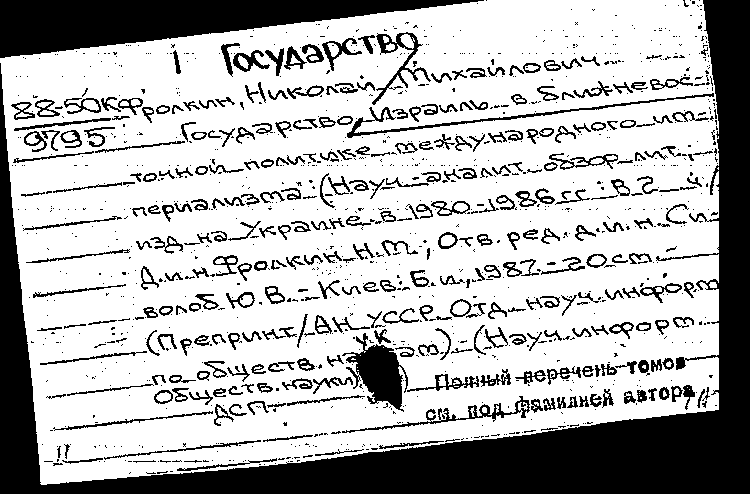 1 Государство
88-50К Фролкин, Николай Михайлович
9795 Государство Израиль в ближневос-
точной политике международного им-
периализма: (Науч.-аналит. обзор лит.,
изд. на Украине в 1980-1986 гг.: В 2 ч./
Д.и.н. Фролкин Н.М.; Отв. ред. д.и.н. Си-
волоб Ю.В. - Киев: Б.и., 1987. - 20 см. -
(Препринт/АН УССР. Отд. науч. информ.
ук
по обществ. наукам) - (Науч. информ.
Обществ. науки)
ДСП.
Полный перечень томов
см. под фамилией автора
11